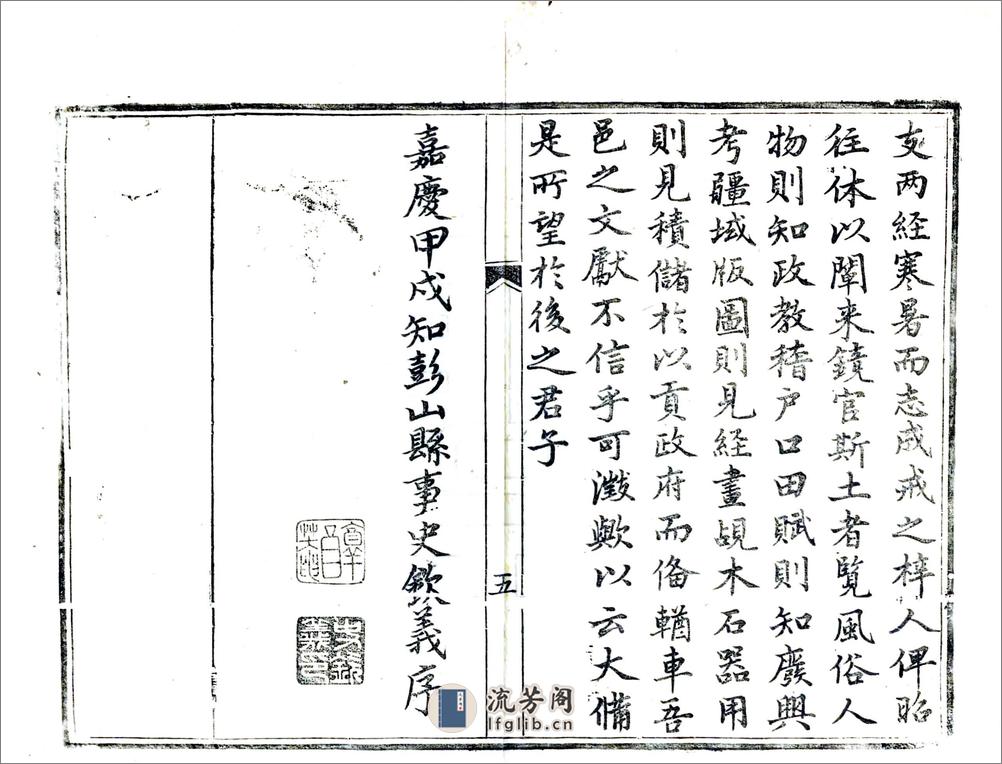 亥两経寒暑而志成戒之梓人俾昭
往休以闡来鏡官斯土者覧風俗人
物則知政教稽户口田賦則知廢興
考疆域版圖則見経畫覘木石器用
則見積儲於以貢政府而俻輶車吾
邑之文獻不信乎可徵歟以云大備
是所望於後之君子
五
嘉慶甲戌知彭山縣事史欽義序
史欽義印
流芳阁
lfglib.cn